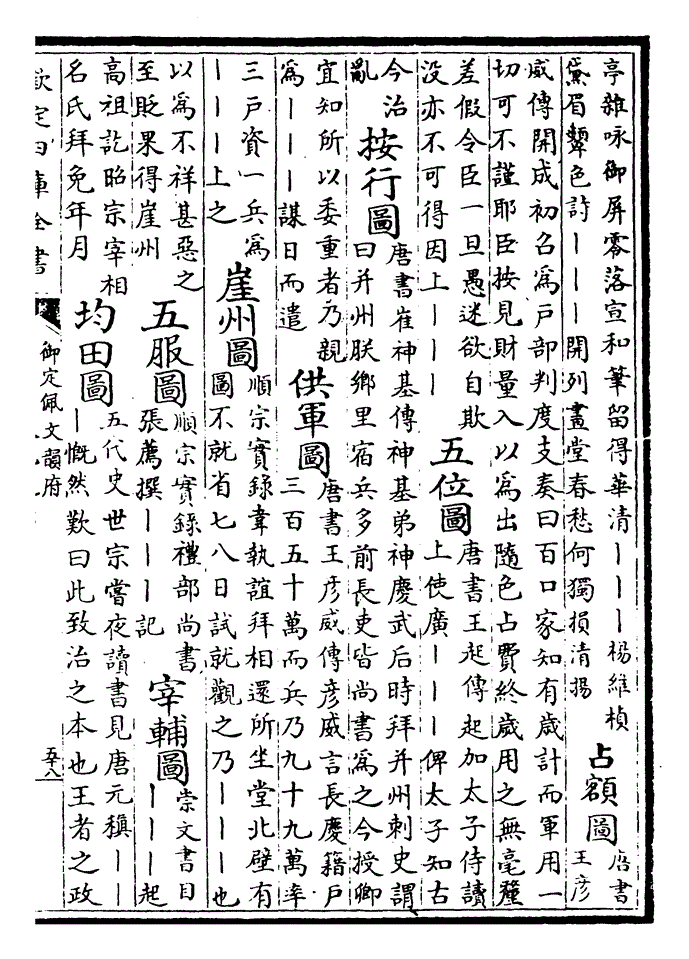 亭雜咏御屏零落宣和筆留得華清丨丨丨楊維楨
黛眉顰色詩丨丨丨開列畫堂春愁何獨損清揚
占額圖
唐書
王彥
威傳開成初召為戸部判度支奏曰百口家知有歳計而軍用一
切可不謹耶臣按見財量入以為出隨色占費終歳用之無毫釐
差假令臣一旦愚迷欲自欺
没亦不可得因上丨丨丨
五位圖
唐書王起傳起加太子侍讀
上使廣丨丨丨俾太子知古
今治
亂
按行圖
唐書崔神基傳神基弟神慶武后時拜并州刺史謂
曰并州朕鄉里宿兵多前長吏皆尚書為之今授卿
宜知所以委重者乃親
為丨丨丨謀日而遣
供軍圖
唐書王彥威傳彥威言長慶籍戸
三百五十萬而兵乃九十九萬率
三戸資一兵為
丨丨丨上之
崖州圖
順宗實錄韋執誼拜相還所坐堂北壁有
圖不就省七八日試就觀之乃丨丨丨也
以為不祥甚惡之
至貶果得崖州
五服圖
順宗實錄禮部尚書
張薦撰丨丨丨記
宰輔圖
崇文書目
丨丨丨起
高祖訖昭宗宰相
名氏拜免年月
均田圖
五代史世宗嘗夜讀書見唐元稹丨丨
丨慨然歎曰此致治之本也王者之政
欽定四庫全書
御定佩文韻府
五十八